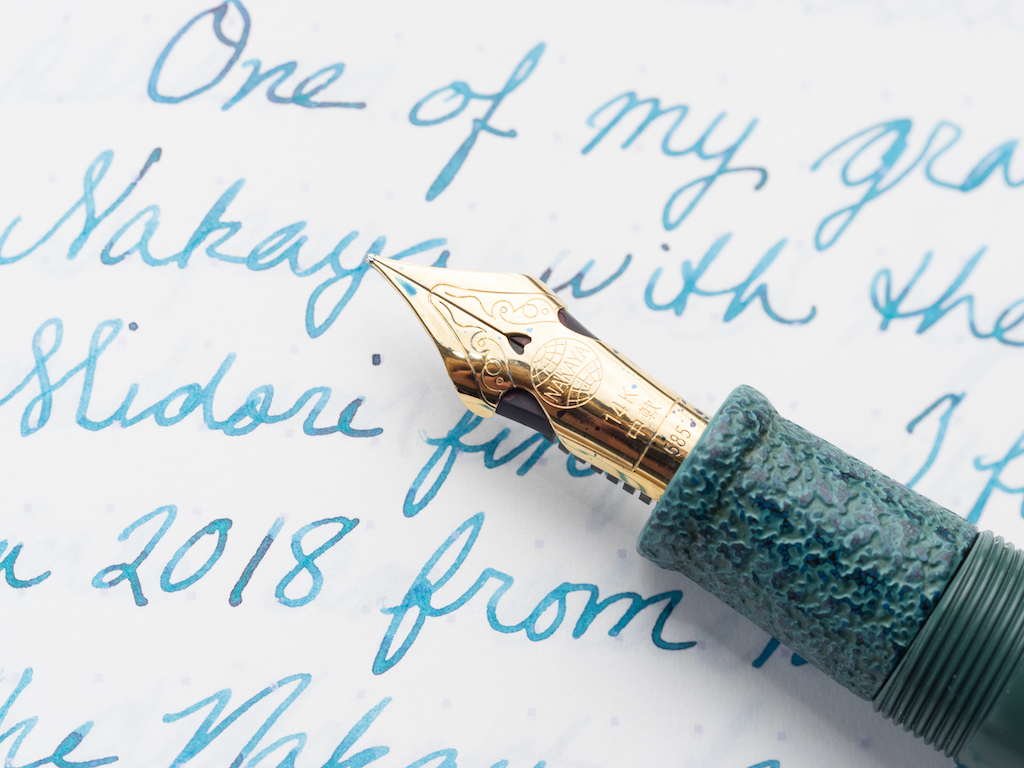 One of my gra
Nakaya with the
Midori fin I f
2018 from
he Nakaya
NAKAYA
14K
中軟
585